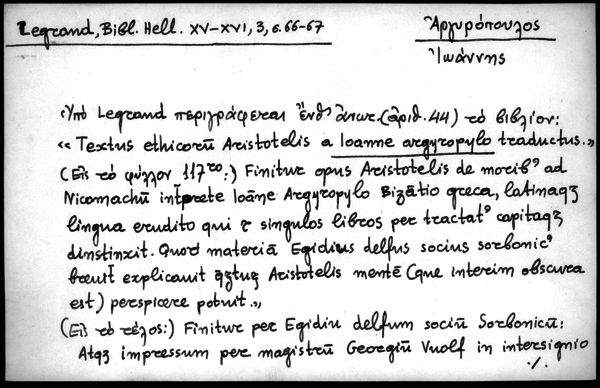 Legrand, Bibl. Hell. XV–XVI, 3, σ. 66-67
Ἀργυρόπουλος
Ἰωάννης
Ὑπὸ Legrand περιγράφεται ἔνθ' ἀνωτ. (ἀριθ. 44) τὸ βιβλίον:
« Textus ethicorū Aristotelis a Ioanne argyropylo traductus.»
(Εἰς τὸ φύλλον 117ʳᵒ:) Finitur opus Aristotelis de moribꝰ ad
Nicomachū int̄prete Ioāne Argyropylo Bizātio greca, latinaqꝫ
lingua erudito qui singulos libros per tractatꝰ capitaqꝫ
dinstinxit. Quod materiā Egidius delfus socius sorbonicꝰ
explicauit Aristotelis mentē (que interim obscura
est) perspicere potuit.»
(Εἰς τὸ τέλος:) Finitur per Egidiu delfum sociū Sorbonicū:
Atqꝫ impressum per magistrū Georgiū Vuolf in intersignio
./.